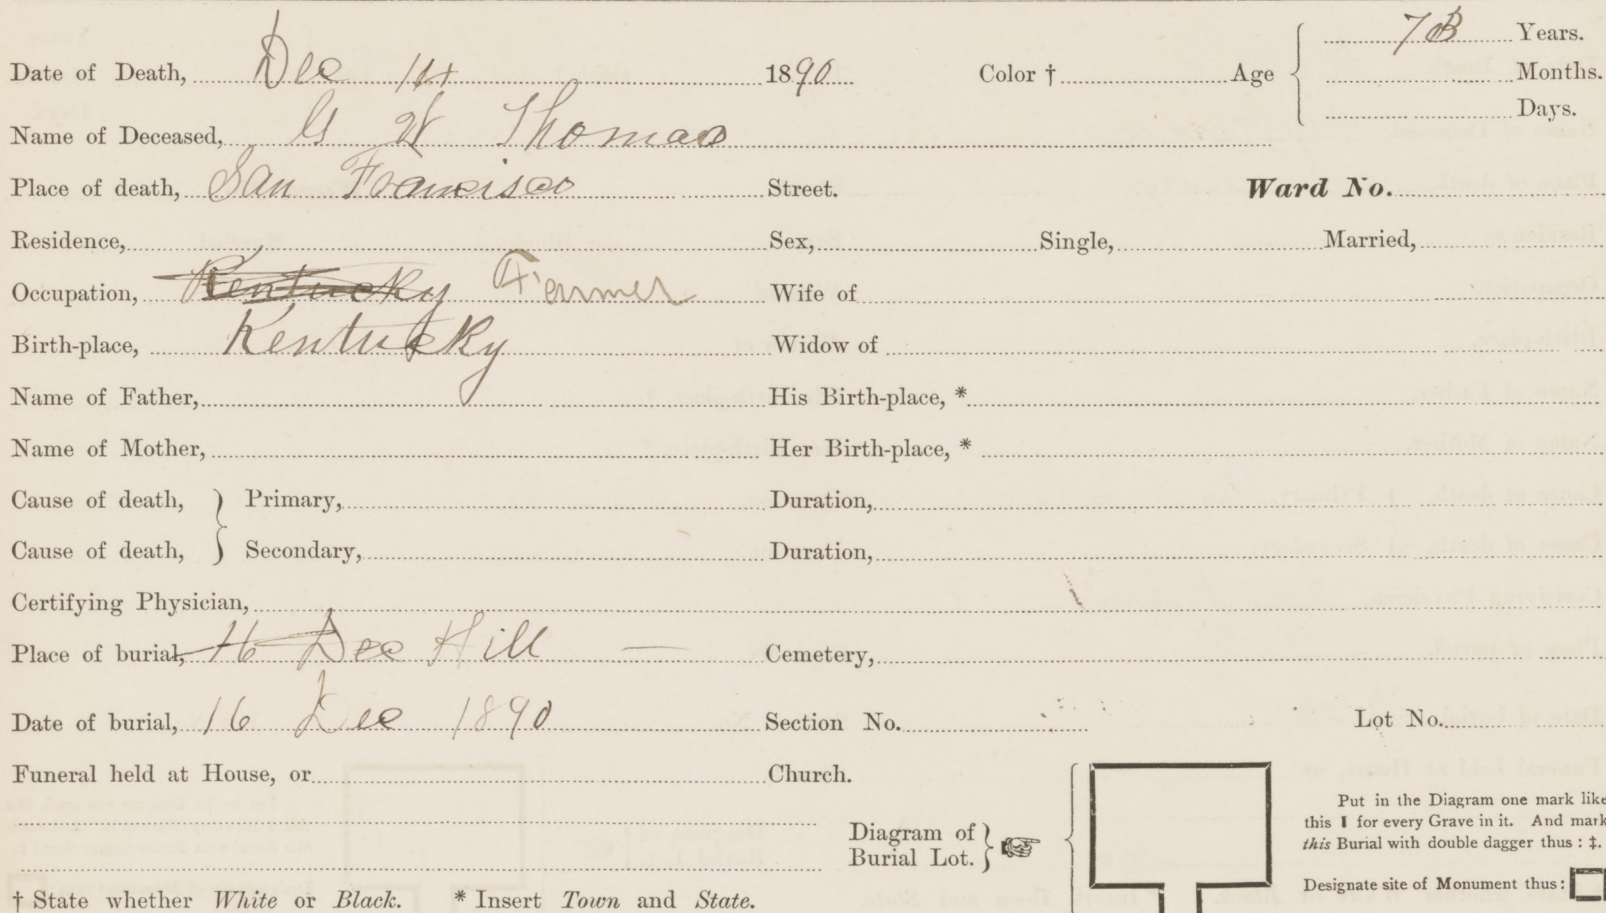 Date of Death, Dec 14 1890 Color † Age 73 Years.
Months.
Days.
Name of Deceased, G W Thomas
Place of death, San Francisco Street. Ward No.
Residence, Sex, Single, Married,
Occupation, Kentucky Farmer Wife of
Birth-place, Kentucky Widow of
Name of Father, His Birth-place, *
Name of Mother, Her Birth-place, *
Cause of death, } Primary, Duration,
Cause of death, } Secondary, Duration,
Certifying Physician,
Place of burial, 16 Dec Hill — Cemetery,
Date of burial, 16 Dec 1890 Section No. Lot No.
Funeral held at House, or Church.
Diagram of Burial Lot. }
Put in the Diagram one mark like
this ❙ for every Grave in it. And mark
this Burial with double dagger thus : ‡.
Designate site of Monument thus :
† State whether White or Black. * Insert Town and State.